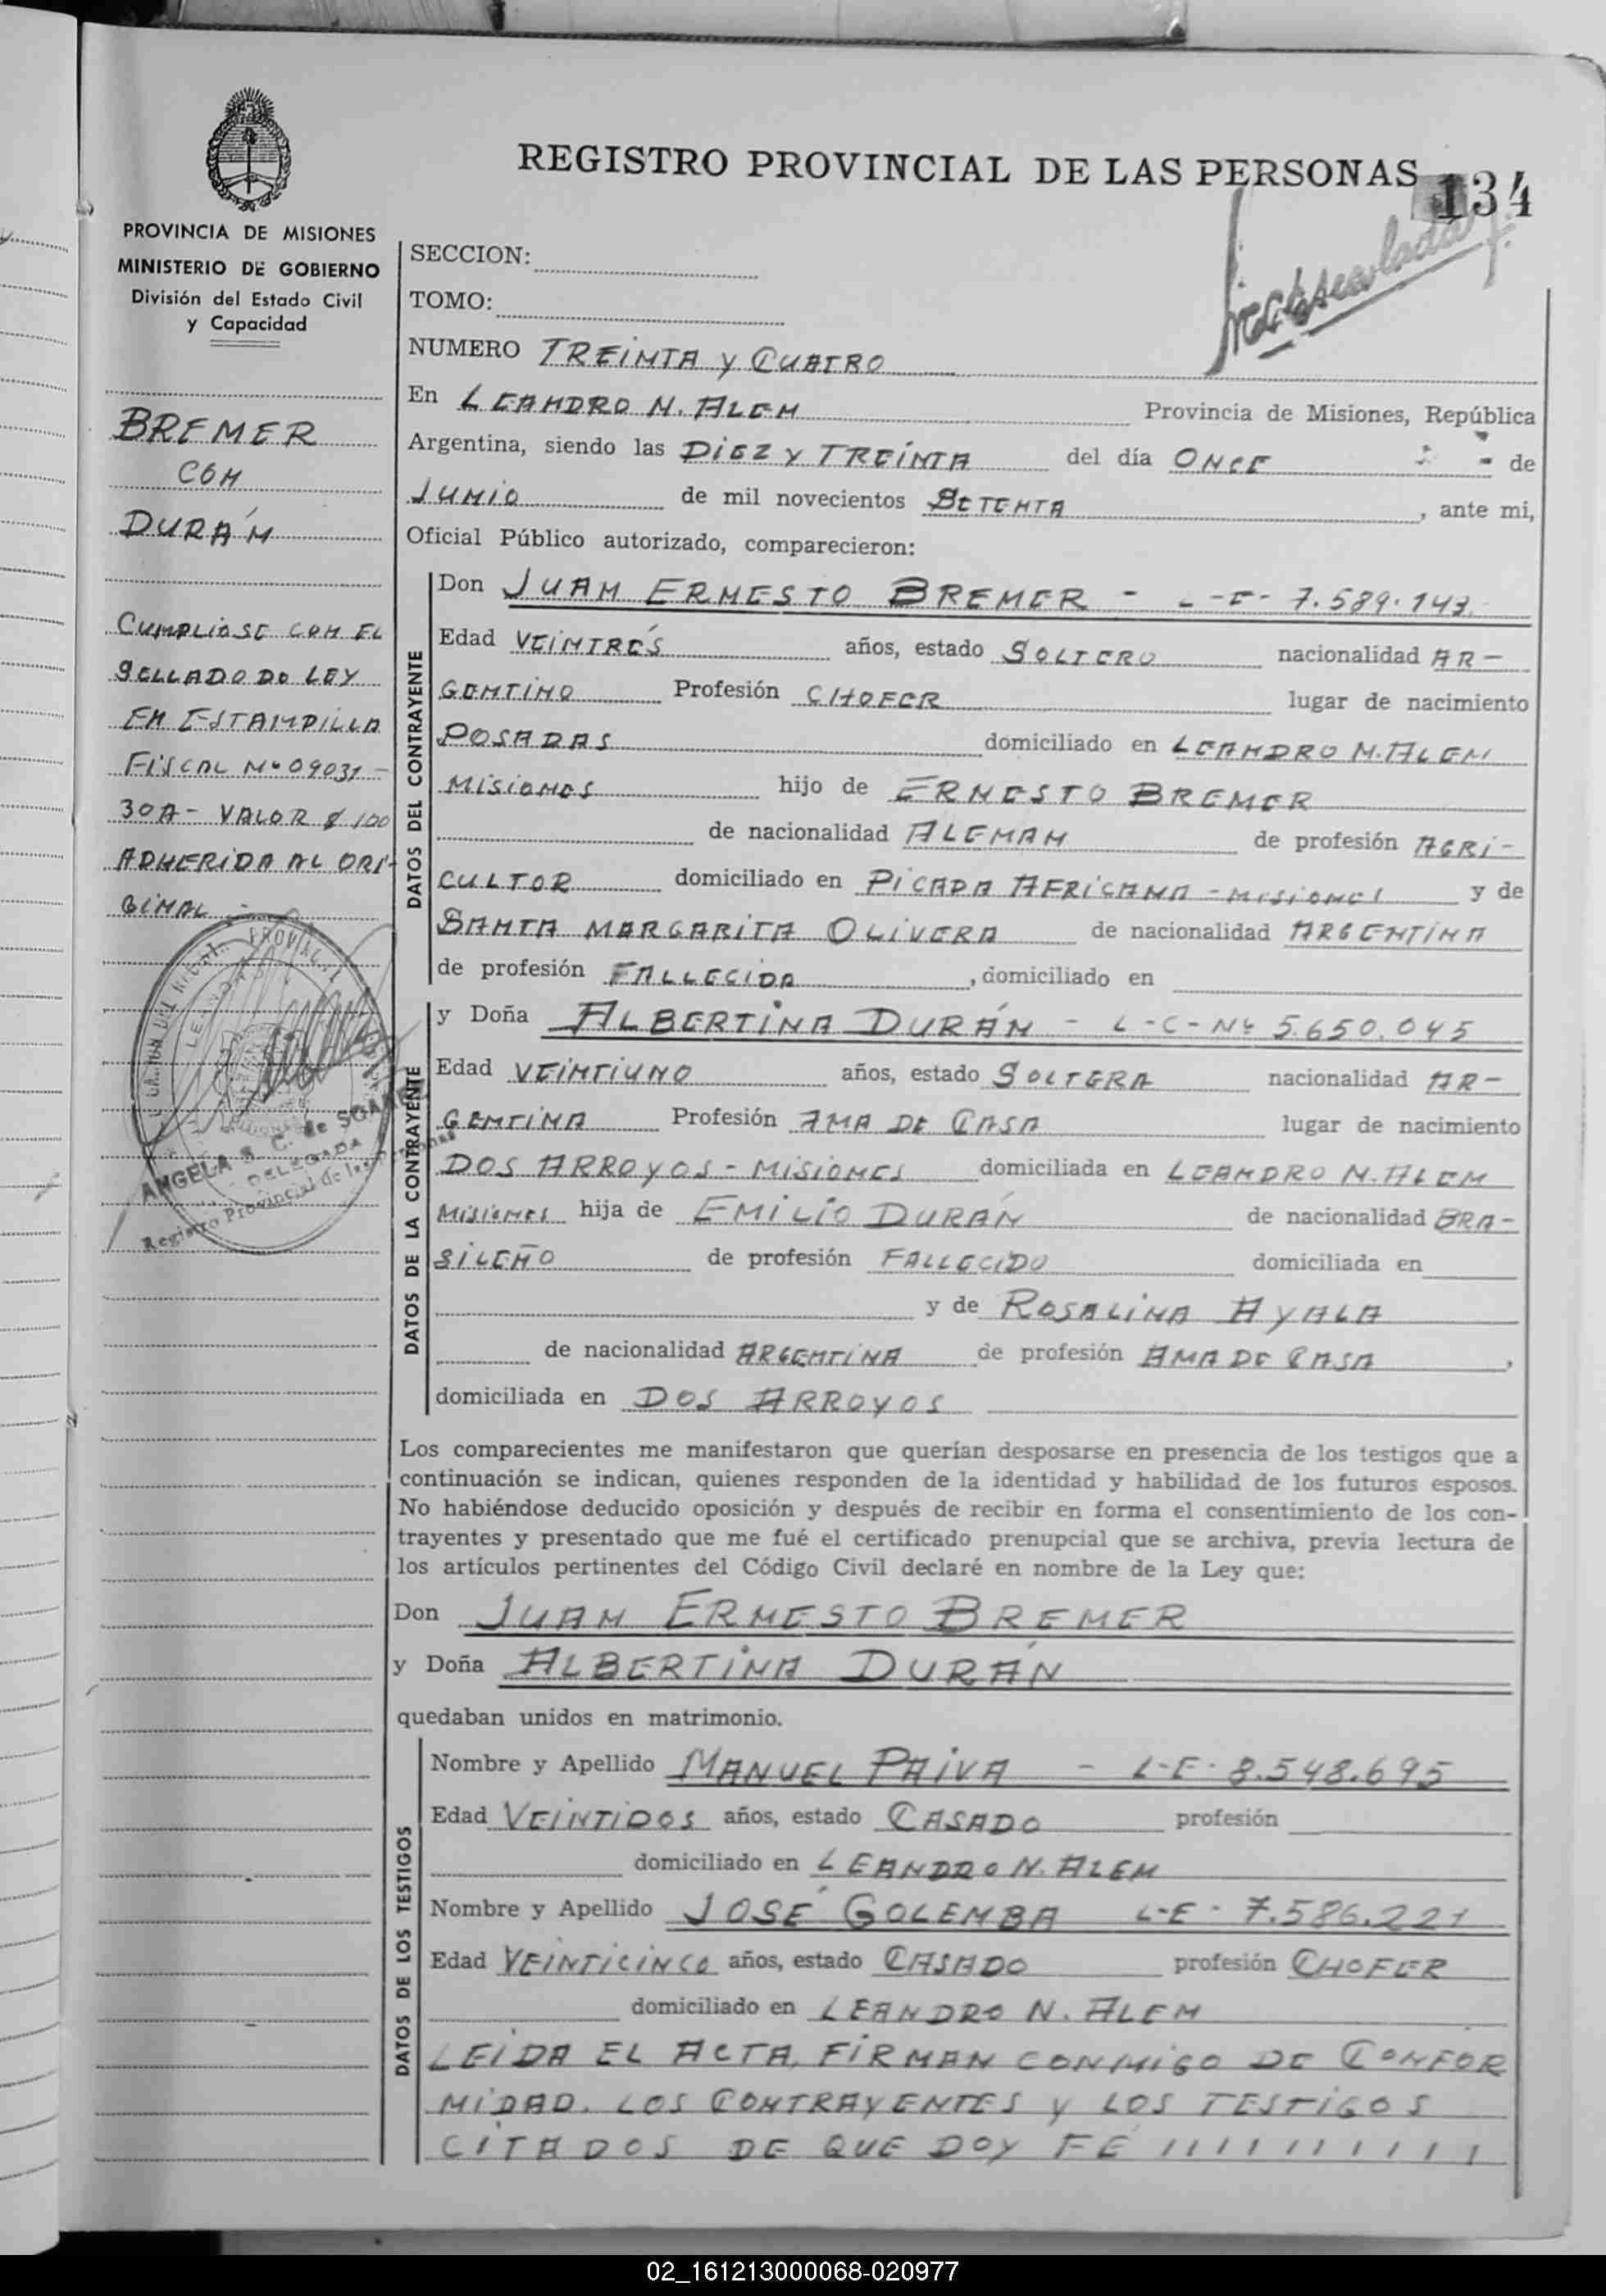 REGISTRO PROVINCIAL DE LAS PERSONAS
134
PROVINCIA DE MISIONES
MINISTERIO DE GOBIERNO
División del Estado Civil
y Capacidad
BREMER
CON
DURÁN
CUMPLIOSE CON EL
SELLADO DO LEY
EN ESTAMPILLA
FISCAL Nº 09031-
30A- VALOR $ 100
ADHERIDA AL ORI-
GINAL -
ANGELA S. C. de
DELEGADA
Registro Provincial de las Personas
SECCION:
TOMO:
NUMERO TREINTA Y CUATRO
En LEANDRO N. ALEM Provincia de Misiones, República
Argentina, siendo las DIEZ Y TREINTA del día ONCE de
JUNIO de mil novecientos SETENTA, ante mi,
Oficial Público autorizado, comparecieron:
DATOS DEL CONTRAYENTE
Don JUAN ERNESTO BREMER - L-E- 7.589.147
Edad VEINTRÉS años, estado SOLTERO nacionalidad AR-
GENTINO Profesión CHOFER lugar de nacimiento
POSADAS domiciliado en LEANDRO N. ALEM
MISIONES hijo de ERNESTO BREMER
de nacionalidad ALEMAN de profesión AGRI-
CULTOR domiciliado en PICADA AFRICANA - MISIONES y de
SANTA MARGARITA OLIVERA de nacionalidad ARGENTINA
de profesión FALLECIDA, domiciliado en
DATOS DE LA CONTRAYENTE
y Doña ALBERTINA DURÁN - L-C-Nº 5.650.045
Edad VEINTIUNO años, estado SOLTERA nacionalidad AR-
GENTINA Profesión AMA DE CASA lugar de nacimiento
DOS ARROYOS - MISIONES domiciliada en LEANDRO N. ALEM
MISIONES hija de EMILIO DURÁN de nacionalidad BRA-
SILEÑO de profesión FALLECIDO domiciliada en
y de ROSALINA AYALA
de nacionalidad ARGENTINA de profesión AMA DE CASA,
domiciliada en DOS ARROYOS
Los comparecientes me manifestaron que querían desposarse en presencia de los testigos que a
continuación se indican, quienes responden de la identidad y habilidad de los futuros esposos.
No habiéndose deducido oposición y después de recibir en forma el consentimiento de los con-
trayentes y presentado que me fué el certificado prenupcial que se archiva, previa lectura de
los artículos pertinentes del Código Civil declaré en nombre de la Ley que:
Don JUAN ERNESTO BREMER
y Doña ALBERTINA DURÁN
quedaban unidos en matrimonio.
DATOS DE LOS TESTIGOS
Nombre y Apellido MANUEL PAIVA - L-E- 8.548.695
Edad VEINTIDOS años, estado CASADO profesión
domiciliado en LEANDRO N. ALEM
Nombre y Apellido JOSÉ GOLEMBA L-E- 7.586.221
Edad VEINTICINCO años, estado CASADO profesión CHOFER
domiciliado en LEANDRO N. ALEM
LEIDA EL ACTA, FIRMAN CONMIGO DE CONFOR
MIDAD. LOS CONTRAYENTES Y LOS TESTIGOS
CITADOS DE QUE DOY FÉ
02_161213000068-020977